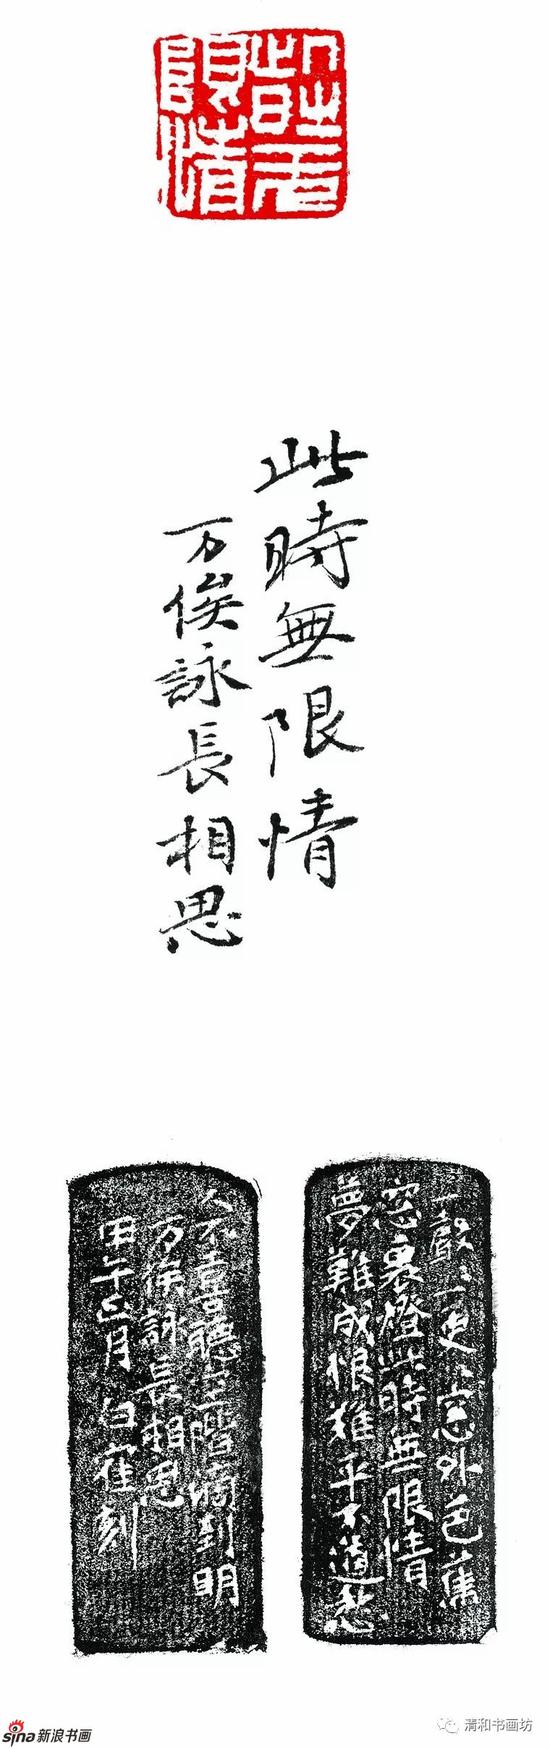 此時无
限情
此時無限情
万俟詠長相思
一聲〻一更〻窓外芭蕉
窓裏燈此時無限情
夢難成恨難平不道愁
人不喜聽空階滴到明
万俟詠長相思
甲午正月白隺刻
sina新浪书画
清和书画坊